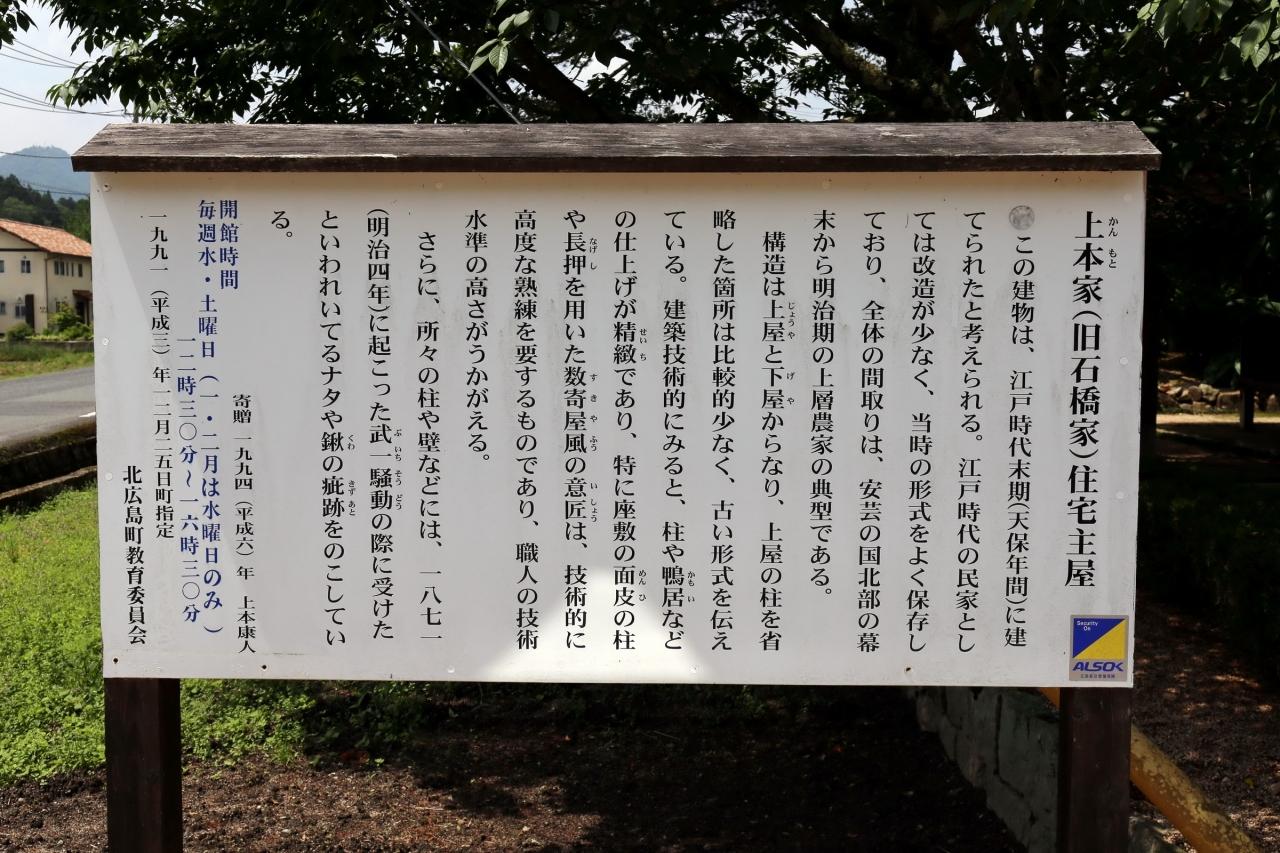 上本家（旧石橋家）住宅主屋
かん もと
この建物は、江戸時代末期（天保年間）に建
てられたと考えられる。江戸時代の民家とし
ては改造が少なく、当時の形式をよく保存し
ており、全体の間取りは、安芸の国北部の幕
末から明治期の上層農家の典型である。
構造は上屋と下屋からなり、上屋の柱を省
じょうや げ や
略した箇所は比較的少なく、古い形式を伝え
ている。建築技術的にみると、柱や鴨居など
かも い
の仕上げが精緻であり、特に座敷の面皮の柱
せい ち めん ひ
や長押を用いた数寄屋風の意匠は、技術的に
なげ し す き や ふう い しょう
高度な熟練を要するものであり、職人の技術
水準の高さがうかがえる。
さらに、所々の柱や壁などには、一八七一
（明治四年）に起こった武一騒動の際に受けた
ぶ いち そう どう
といわれいてるナタや鍬の疵跡をのこしてい
くわ きず あと
る。
寄贈 一九九四（平成六）年 上本康人
開館時間
毎週水・土曜日（一・二月は水曜日のみ）
一二時三〇分～一六時三〇分
一九九一（平成三）年一二月二五日町指定
北広島町教育委員会
Security
On
ALSOK